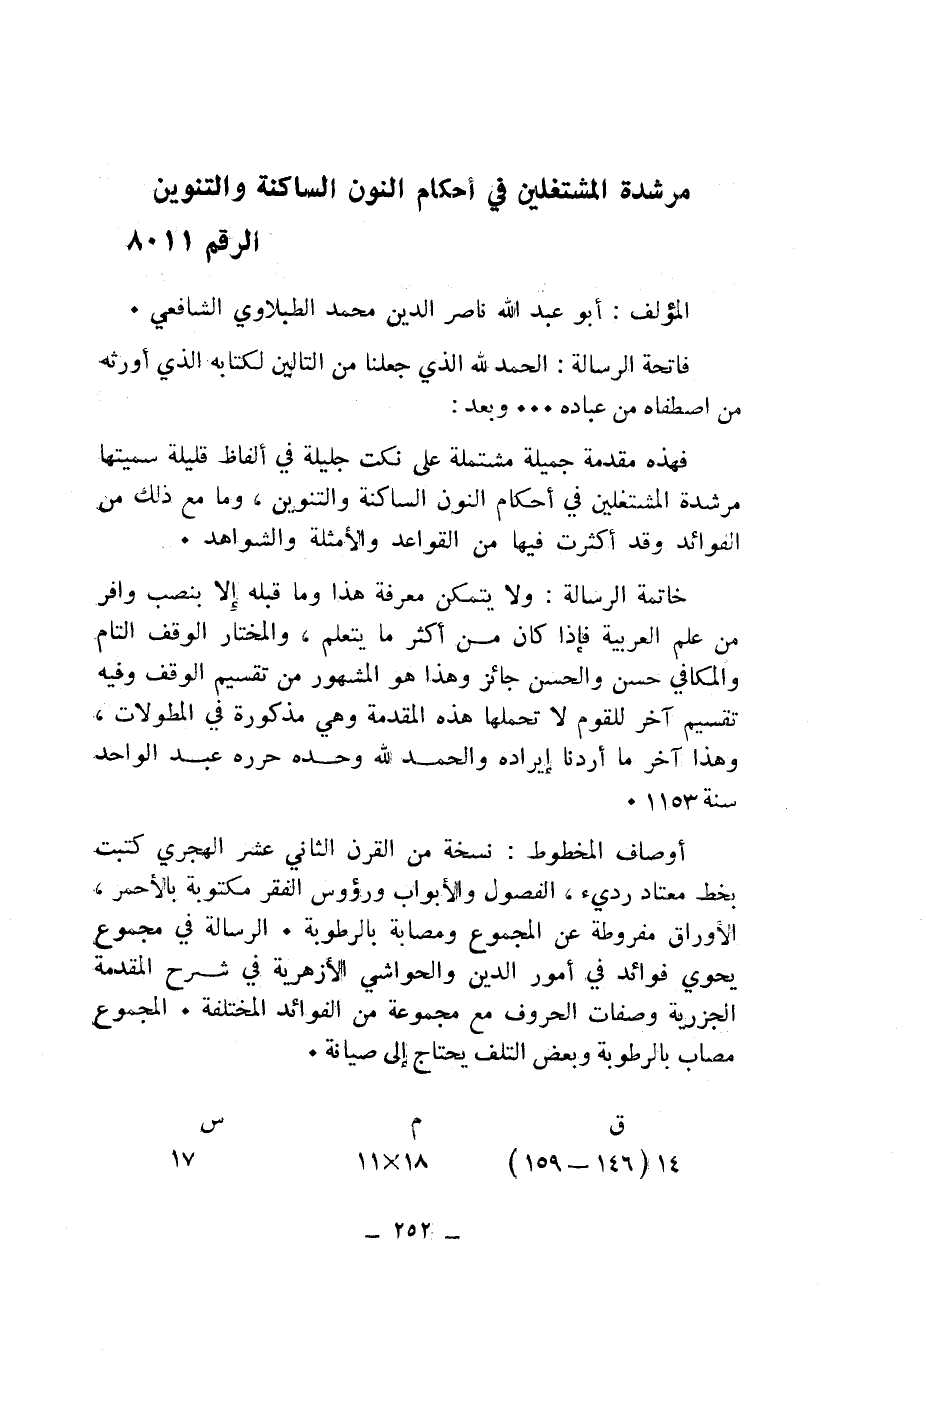 مرشدة المشتغلين في أحكام النون الساكنة والتنوين
الرقم ٨٠١١
المؤلف : أبو عبد الله ناصر الدين محمد الطبلاوي الشافعي .
فاتحة الرسالة : الحمد لله الذي جعلنا من التالين لكتابه الذي أورثه
من اصطفاه من عباده ... وبعد :
فهذه مقدمة جميلة مشتملة على نكت جليلة في ألفاظ قليلة سميتها
مرشدة المشتغلين في أحكام النون الساكنة والتنوين ، وما مع ذلك من
الفوائد وقد أكثرت فيها من القواعد والأمثلة والشواهد .
خاتمة الرسالة : ولا يتمكن معرفة هذا وما قبله إلا بنصب وافر
من علم العربية فإذا كان مــن أكثر ما يتعلم ، والمختار الوقف التام
والمكافي حسن والحسن جائز وهذا هو المشهور من تقسيم الوقف وفيه
تقسيم آخر للقوم لا تحملها هذه المقدمة وهي مذكورة في المطولات ،
وهذا آخر ما أردنا إيراده والحمــد لله وحــده حرره عبــد الواحد
سنة ١١٥٣ .
أوصاف المخطوط : نسخة من القرن الثاني عشر الهجري كتبت
بخط معتاد رديء ، الفصول والأبواب ورؤوس الفقر مكتوبة بالأحمر ،
الأوراق مفروطة عن المجموع ومصابة بالرطوبة . الرسالة في مجموع
يحوي فوائد في أمور الدين والحواشي الأزهرية في شــرح المقدمة
الجزرية وصفات الحروف مع مجموعة من الفوائد المختلفة . المجموع
مصاب بالرطوبة وبعض التلف يحتاج إلى صيانة .
ق م س
١٤ (١٤٦ – ١٥٩) ١١×١٨ ١٧
– ٢٥٢ –